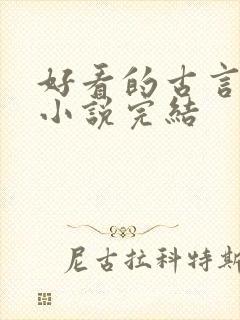 好看的古言
小説完結
尼古拉科特斯